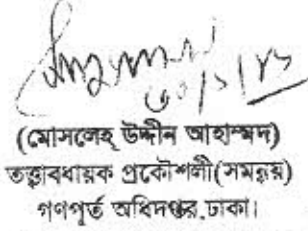 ৩০/১/১৩
(মোসলেহ্ উদ্দীন আহাম্মদ)
তত্ত্বাবধায়ক প্রকৌশলী(সমন্বয়)
গণপূর্ত অধিদপ্তর,ঢাকা।